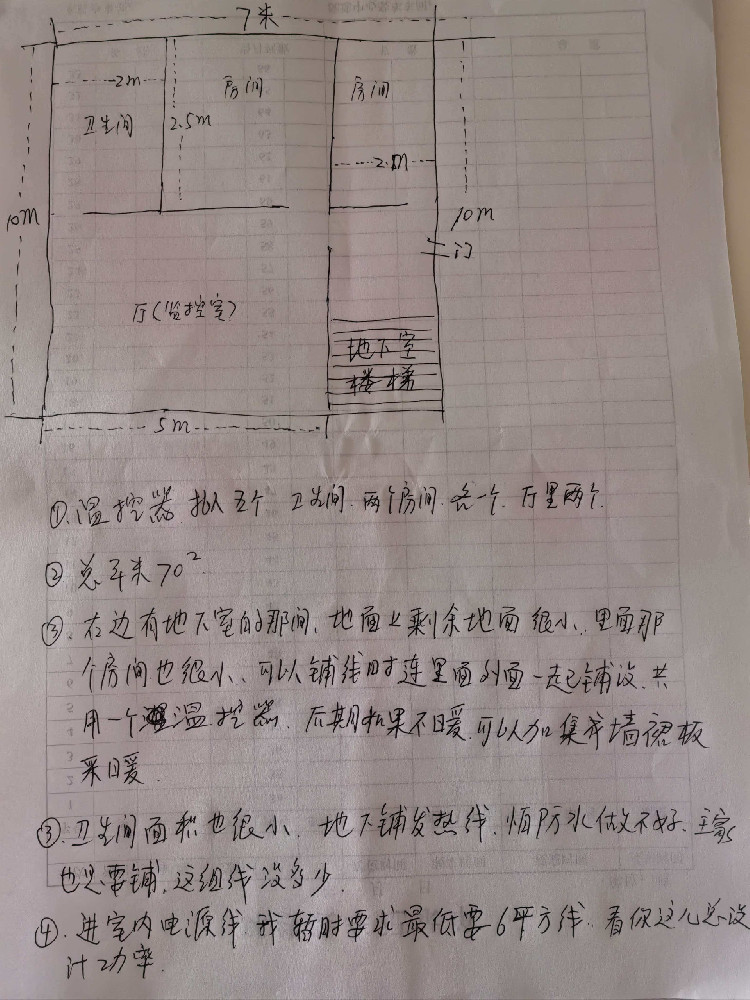 7米
2m
房间
房间
卫生间
2.5m
2m
10m
10m
门
厅(监控室)
地下室
楼梯
5m
①.温控器 拟五个 卫生间.两个房间.各一个.厅里两个.
② 总平米70²
③.右边有地下室的那间、地面上剩余地面很小、里面那
个房间也很小、可以铺线时连里面外面一起铺设.共
用一个温控器.后期如果不暖.可以加集成墙裙板
采暖.
③.卫生间面积也很小.地下铺发热线.怕防水做不好.主家
也忌要铺.这组线没多少.
④.进室内电源线 我暂时要求最低要6平方线.看你这儿总设
计功率.